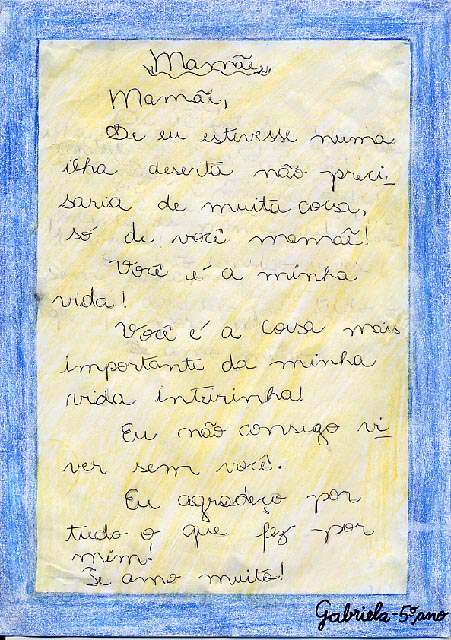 Mamãe
Mamãe,
Se eu estivesse numa
ilha deserta não preci-
saria de muita coisa,
só de você mamãe!
Você é a minha
vida!
Você é a coisa mais
importante da minha
vida inteirinha!
Eu não consigo vi-
ver sem você.
Eu agradeço por
tudo o que fez por
mim!
Te amo muito!
Gabriela - 5º ano